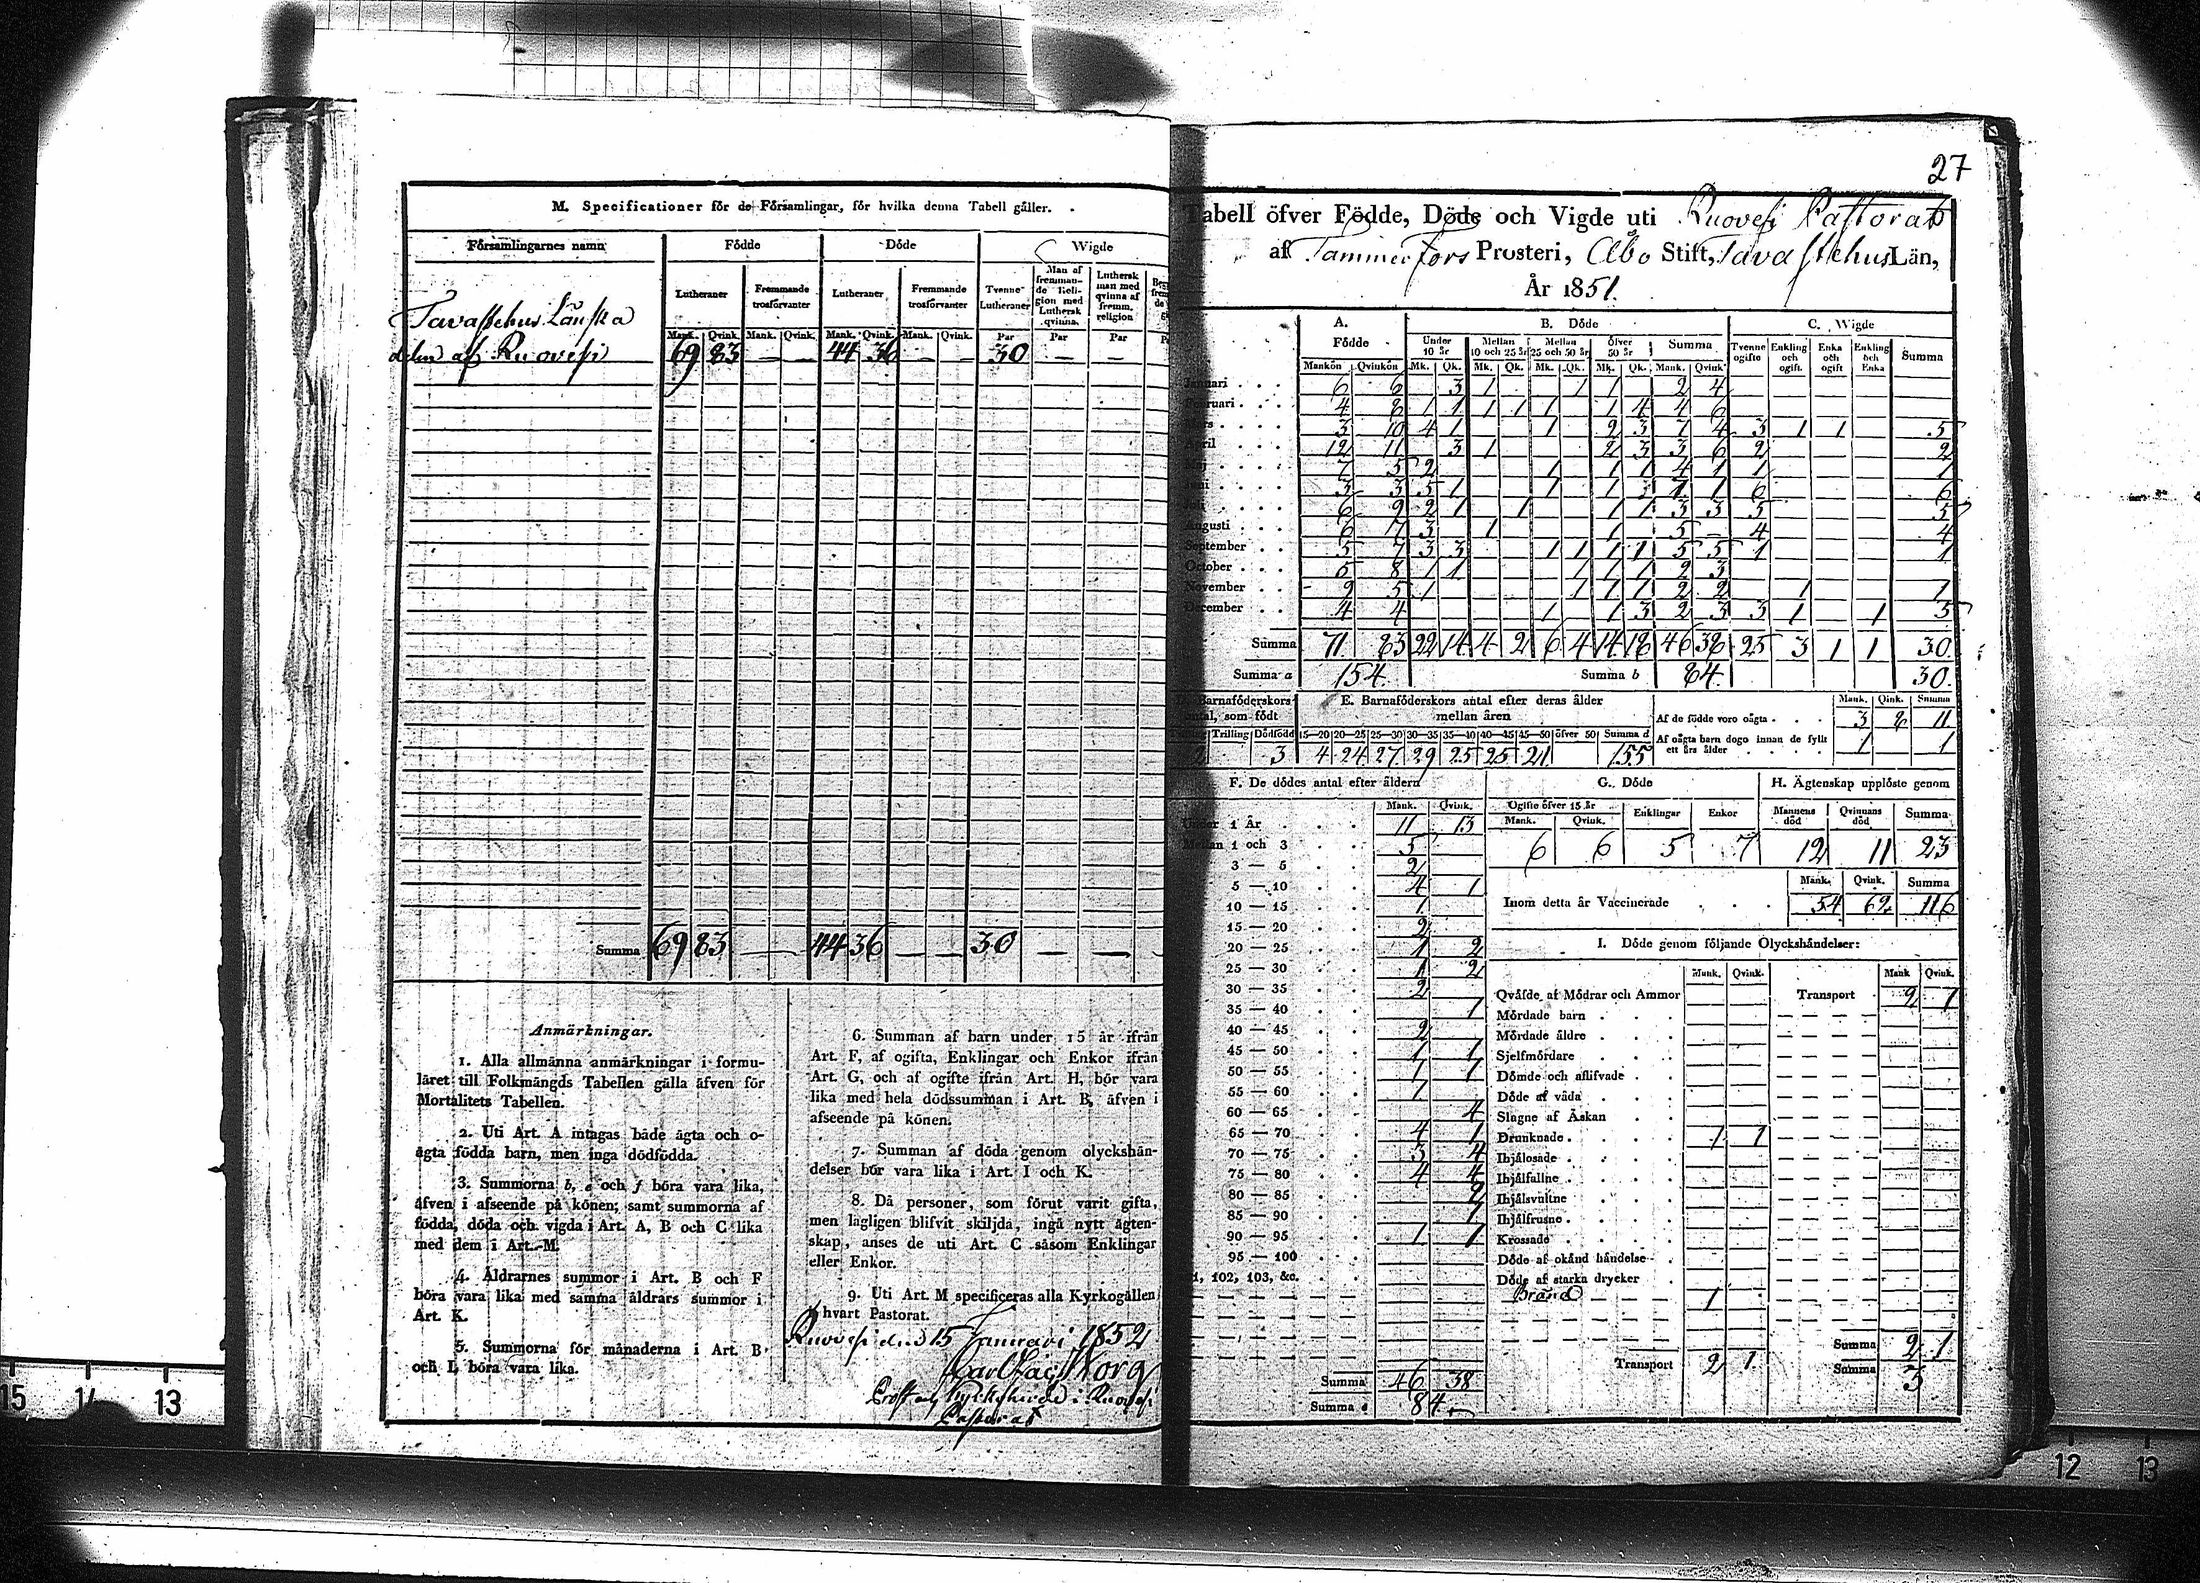 M. Specificationer för de Församlingar, för hvilka denna Tabell gäller.
Församlingarnes namn | Födde | Döde | Wigde
Lutheraner | Fremmande trosförvanter | Lutheraner | Fremmande trosförvanter | Tvenne Lutheraner | Man af fremmande Religion med Luthersk qvinna. | Luthersk man med qvinna af fremm. religion
Mank. Qvink. Mank. Qvink. Mank. Qvink. Mank. Qvink. Par Par Par
Tavastehus Länska
delen af Ruovesi 69 83 — — 44 36 — — 30 — —
Summa 69 83 — — 44 36 — — 30 — —
Anmärkningar.
1. Alla allmänna anmärkningar i formu-
läret till Folkmängds Tabellen gälla äfven för
Mortalitets Tabellen.
2. Uti Art. A intagas både ägta och o-
ägta födda barn, men inga dödfödda.
3. Summorna b, e och f böra vara lika,
äfven i afseende på könen; samt summorna af
födda, döda och vigda i Art. A, B och C lika
med dem i Art. M.
4. Åldrarnes summor i Art. B och F
böra vara lika med samma åldrars summor i
Art. K.
5. Summorna för månaderna i Art. B
och L böra vara lika.
6. Summan af barn under 15 år ifrån
Art. F, af ogifta, Enklingar och Enkor ifrån
Art. G, och af ogifte ifrån Art. H, bör vara
lika med hela dödssumman i Art. B, äfven i
afseende på könen.
7. Summan af döda genom olyckshän-
delser bör vara lika i Art. I och K.
8. Då personer, som förut varit gifta,
men lagligen blifvit skiljda, ingå nytt ägten-
skap, anses de uti Art. C såsom Enklingar
eller Enkor.
9. Uti Art. M specificeras alla Kyrkogällen
i hvart Pastorat.
Ruovesi d. 15 Januari 1852
27
Tabell öfver Födde, Döde och Vigde uti Ruovesi Pastorat
af Tammerfors Prosteri, Åbo Stift, Tavastehus Län,
År 1851.
A. Födde | B. Döde | C. Wigde
Under 10 år | Mellan 10 och 25 år | Mellan 25 och 50 år | Öfver 50 år | Summa | Tvenne ogifte | Enkling och ogift. | Enka och ogift | Enkling och Enka | Summa
Mankön Qvinkön Mk. Qk. Mk. Qk. Mk. Qk. Mk. Qk. Mank. Qvink.
Januari 6 6 3 1 1 1 2 4
Februari 4 8 1 1 1 1 1 1 4 4 6
Mars 3 10 4 1 1 2 3 7 4 3 1 1 5
April 12 11 3 1 2 3 3 6 2 2
Maj 7 5 2 1 1 1 4 1 1 1
Juni 3 3 5 1 1 1 7 1 6 6
Juli 6 9 2 1 1 1 1 3 3 5 5
Augusti 6 7 3 1 1 5 4 4
September 5 7 3 3 1 1 1 1 5 5 1 1
October 5 8 1 1 1 1 1 2 3
November 9 5 1 1 1 1 2 2 1 1
December 4 4 1 1 3 2 3 3 1 1 5
Summa 71 83 22 14 4 2 6 4 14 18 46 38 25 3 1 1 30
Summa a 154. Summa b 84. 30.
D. Barnaföderskors antal, som födt | E. Barnaföderskors antal efter deras ålder mellan åren
Trilling Dödfödd 15—20 20—25 25—30 30—35 35—40 40—45 45—50 öfver 50 Summa d
2 3 4 24 27 29 25 25 21 155
Mank. Qink. Summa
Af de födde voro oägta 3 8 11
Af oägta barn dogo innan de fyllt ett års ålder 1 1
F. De dödes antal efter åldern
Mank. Qvink.
Under 1 År 11 13
Mellan 1 och 3 5
3 — 5 2
5 — 10 4 1
10 — 15 1
15 — 20 2
20 — 25 1 2
25 — 30 1 2
30 — 35 2
35 — 40 1
40 — 45 2
45 — 50 1 1
50 — 55 1 1
55 — 60 1
60 — 65 4
65 — 70 4 1
70 — 75 3 4
75 — 80 4 4
80 — 85 2
85 — 90 1
90 — 95 1 1
95 — 100
102, 103, &c.
Summa 46 38
Summa e 84.
G. Döde
Ogifte öfver 15 år | Enklingar | Enkor
Mank. Qvink.
6 6 5 7
H. Ägtenskap upplöste genom
Mannens död | Qvinnans död | Summa
12 11 23
Mank. Qvink. Summa
Inom detta år Vaccinerade 54 62 116
I. Döde genom följande Olyckshändelser:
Mank. Qvink. Mank Qvink.
Qväfde af Mödrar och Ammor Transport 2 1
Mördade barn
Mördade äldre
Sjelfmördare
Dömde och aflifvade
Döde af våda
Slagne af Åskan
Drunknade 1 1
Ihjälosade
Ihjälfallne
Ihjälsvultne
Ihjälfrusne
Krossade
Döde af okänd händelse
Döde af starka drycker
Brand 1
Transport 2 1
Summa 2 1
Summa 3
15 14 13
12 13